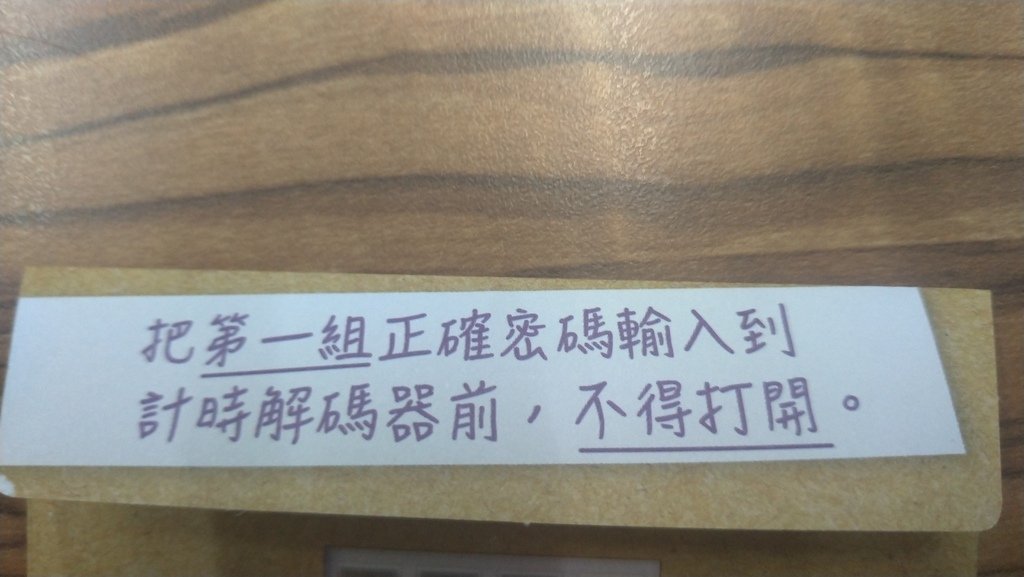 把第一組正確密碼輸入到
計時解碼器前，不得打開。